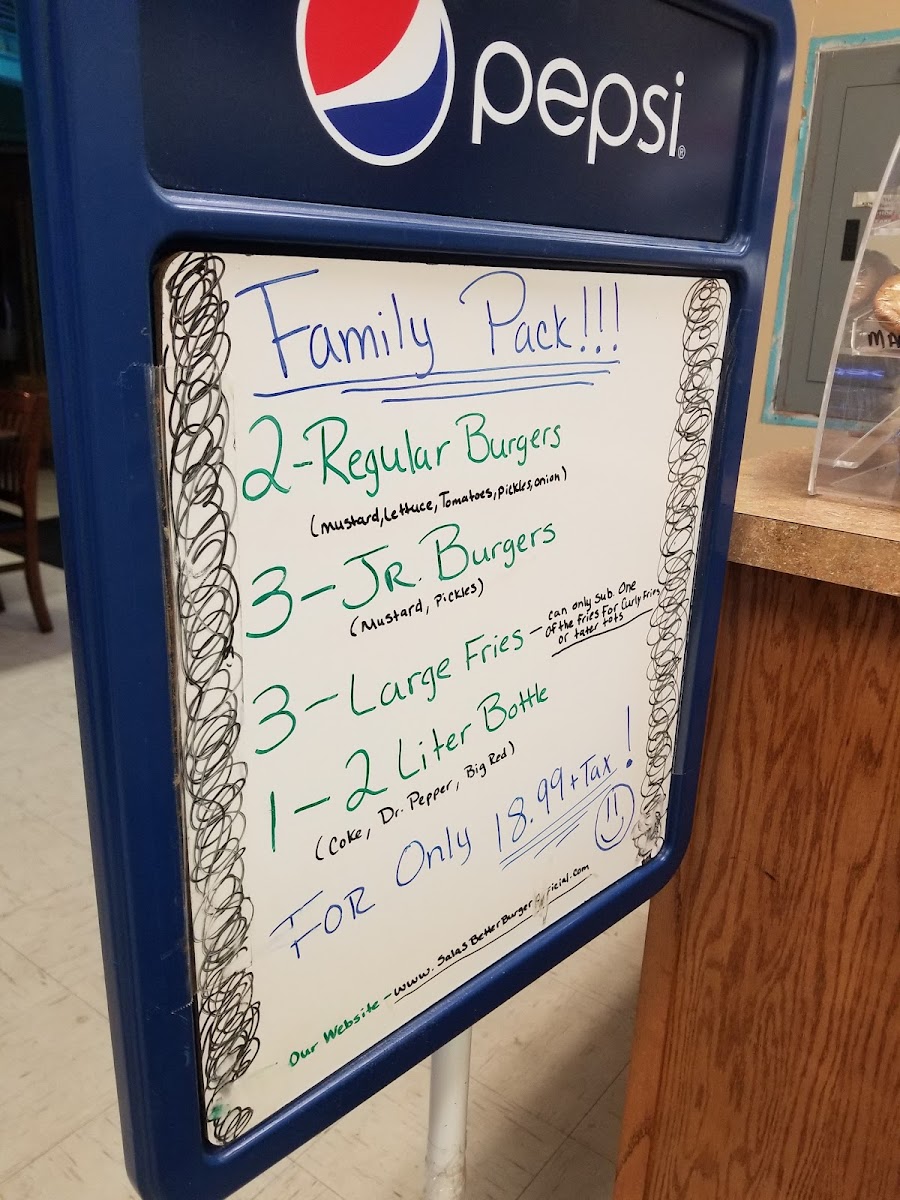 pepsi®
Family Pack!!!
2-Regular Burgers
(Mustard, Lettuce, Tomatoes, Pickles, onion)
3-JR. Burgers
(Mustard, Pickles)
3-Large Fries - can only sub. One
of the fries For Curly Fries
or tater tots
1-2 Liter Bottle
(Coke, Dr. Pepper, Big Red)
FOR Only 18.99+Tax!
Our Website - www.SalasBetterBurger
icial.com
MA